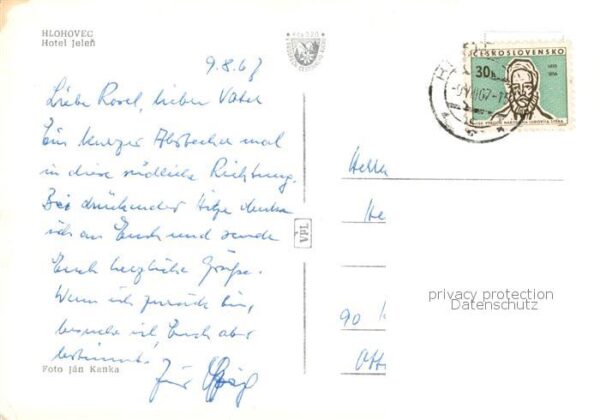 HLOHOVEC
Hotel Jeleň
9.8.67
ČESKOSLOVENSKO
30h
Liebe Rosel, lieber Vater
Ein kurzer Abstecher mal
in diese südliche Richtung.
Bei drückender Hitze denke
ich an Euch und sende
Euch herzliche Grüße.
Wenn ich zurück bin,
besuche ich Euch aber
bestimmt.
VPL
Foto Ján Kanka
privacy protection
Datenschutz
90